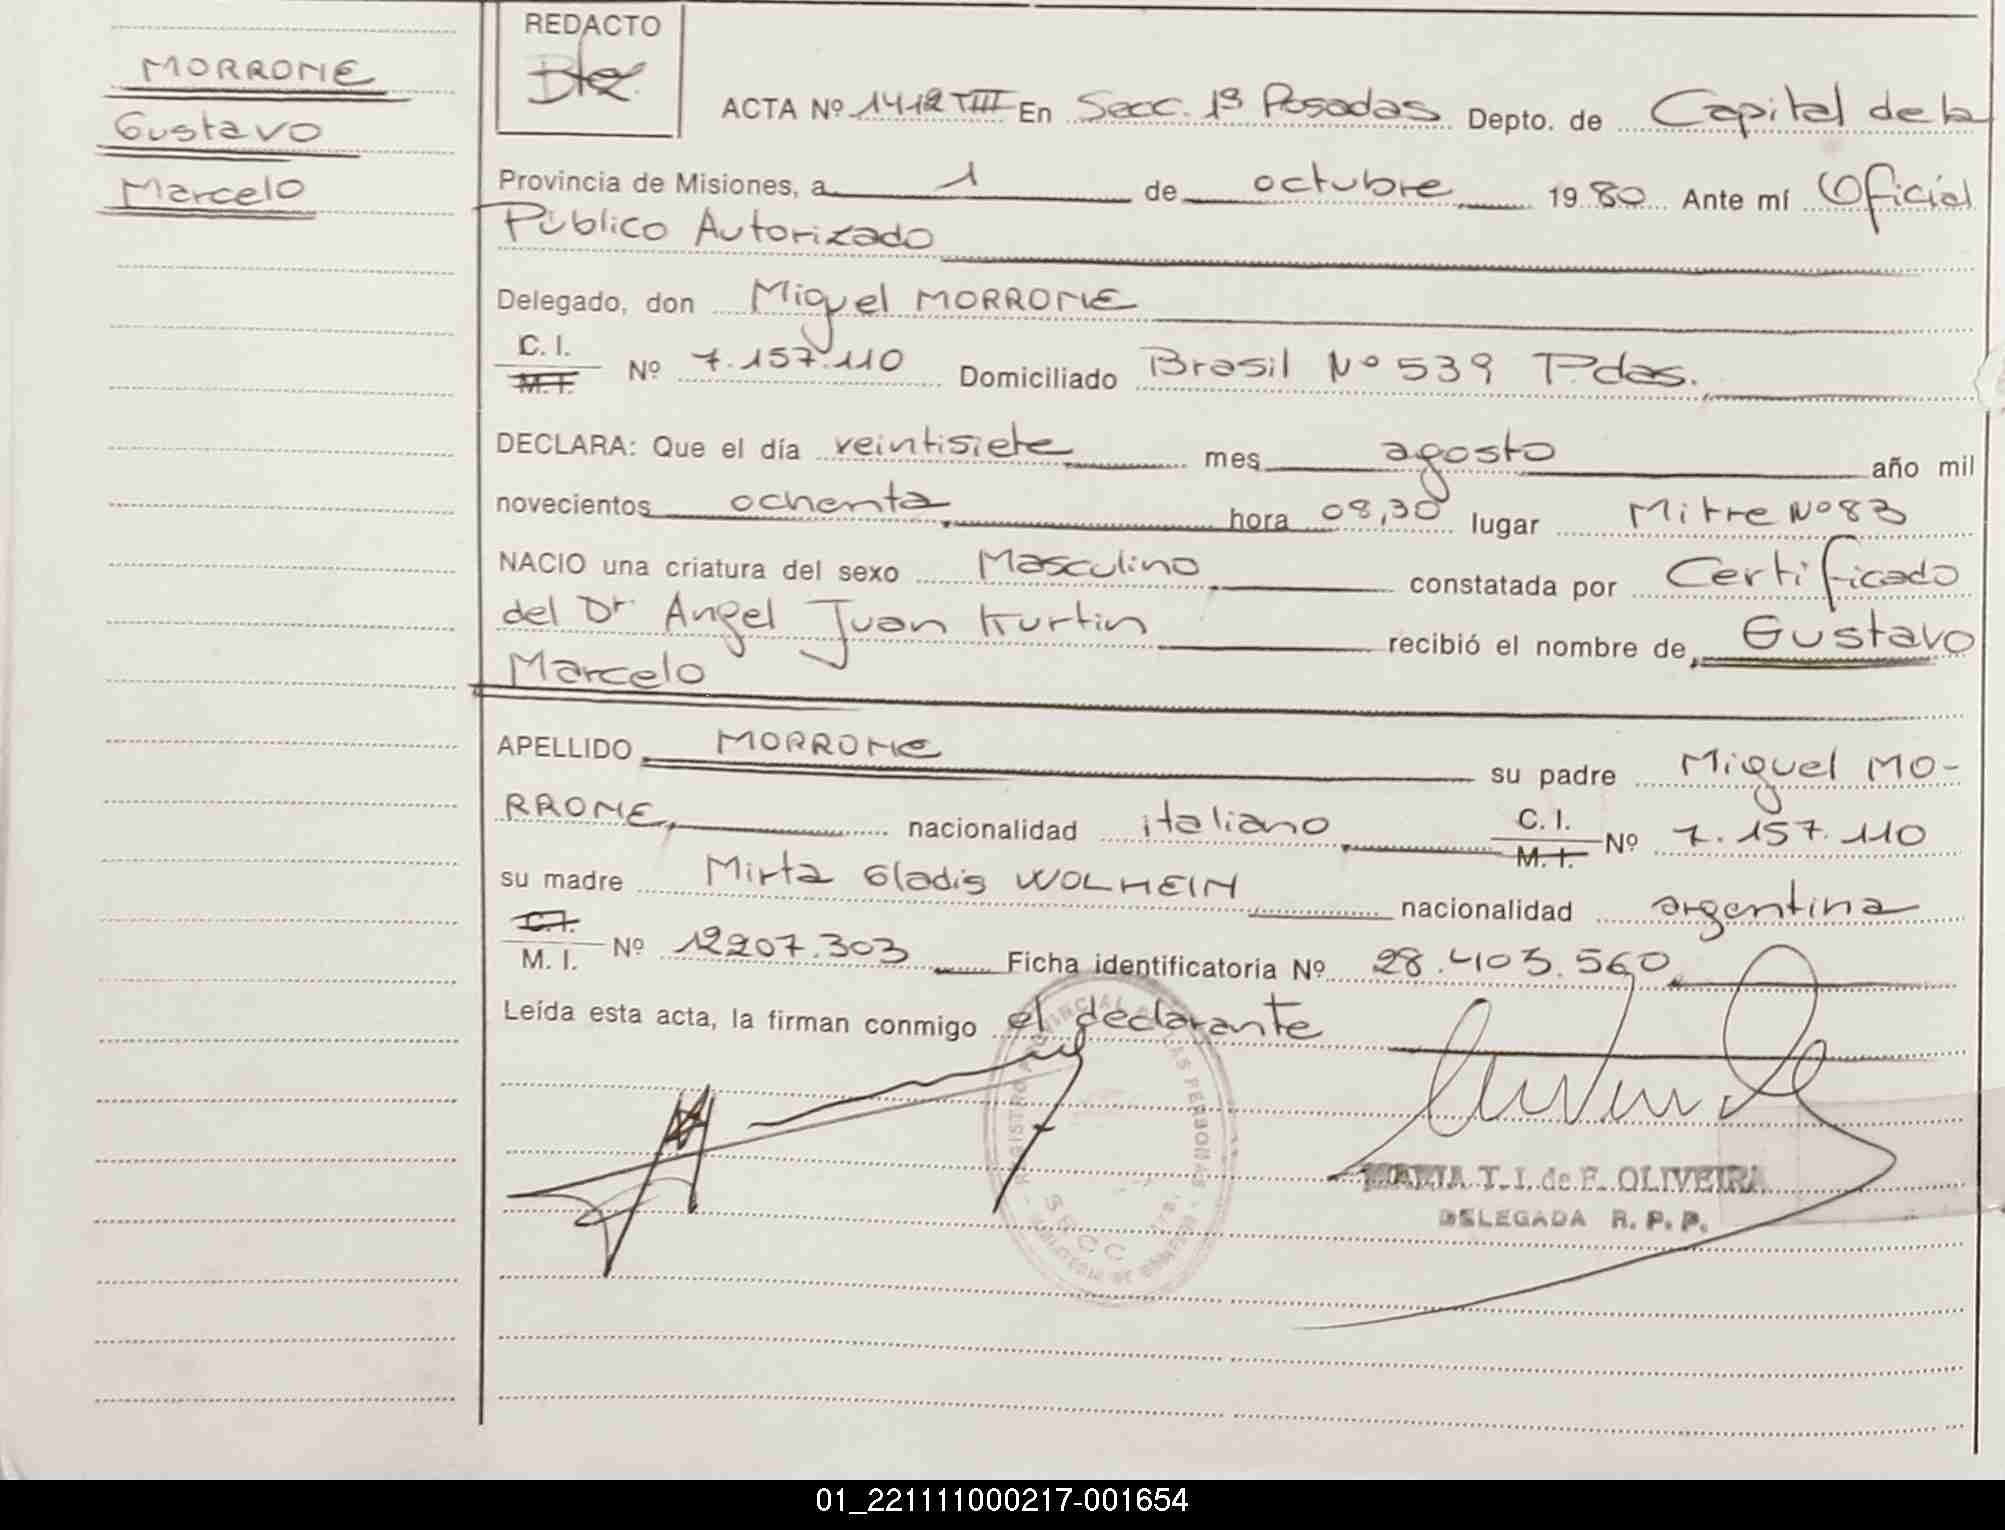 MORRONE
Gustavo
Marcelo
REDACTO
ACTA Nº 1412 TIII En Secc. 1ª Posadas Depto. de Capital de la
Provincia de Misiones, a 1 de octubre 1980 Ante mí Oficial
Público Autorizado
Delegado, don Miguel MORRONE
C. I.
M. I. Nº 7.157.110 Domiciliado Brasil Nº 539 Pdas.
DECLARA: Que el día veintisiete mes agosto año mil
novecientos ochenta hora 08,30 lugar Mitre Nº 83
NACIO una criatura del sexo Masculino constatada por Certificado
del Dr. Angel Juan Kurtin recibió el nombre de Gustavo
Marcelo
APELLIDO MORRONE su padre Miguel MO-
RRONE, nacionalidad italiano C. I.
M. I. Nº 7.157.110
su madre Mirta Gladis WOLHEIN nacionalidad argentina
C. I.
M. I. Nº 12207.303 Ficha identificatoria Nº 28.403.560
Leída esta acta, la firman conmigo el declarante
REGISTRO PROVINCIAL DE LAS PERSONAS
SECC. 1ra.
MARIA T. I. de F. OLIVEIRA
DELEGADA R. P. P.
01_221111000217-001654